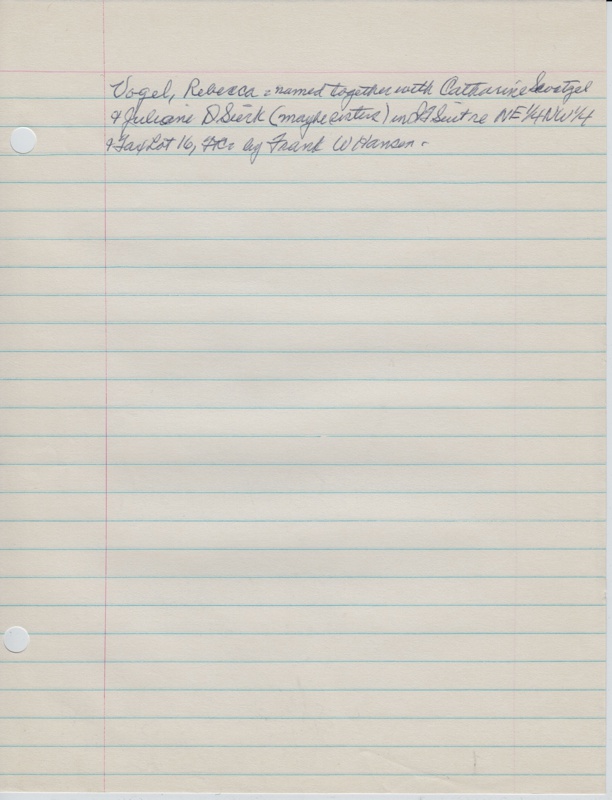 Vogel, Rebecca = named together with Catharine
& Juliane D Sierk (maybe sisters) in Suit re NE 1/4 NW 1/4
& Tax Lot 16, by Frank W Hansen -